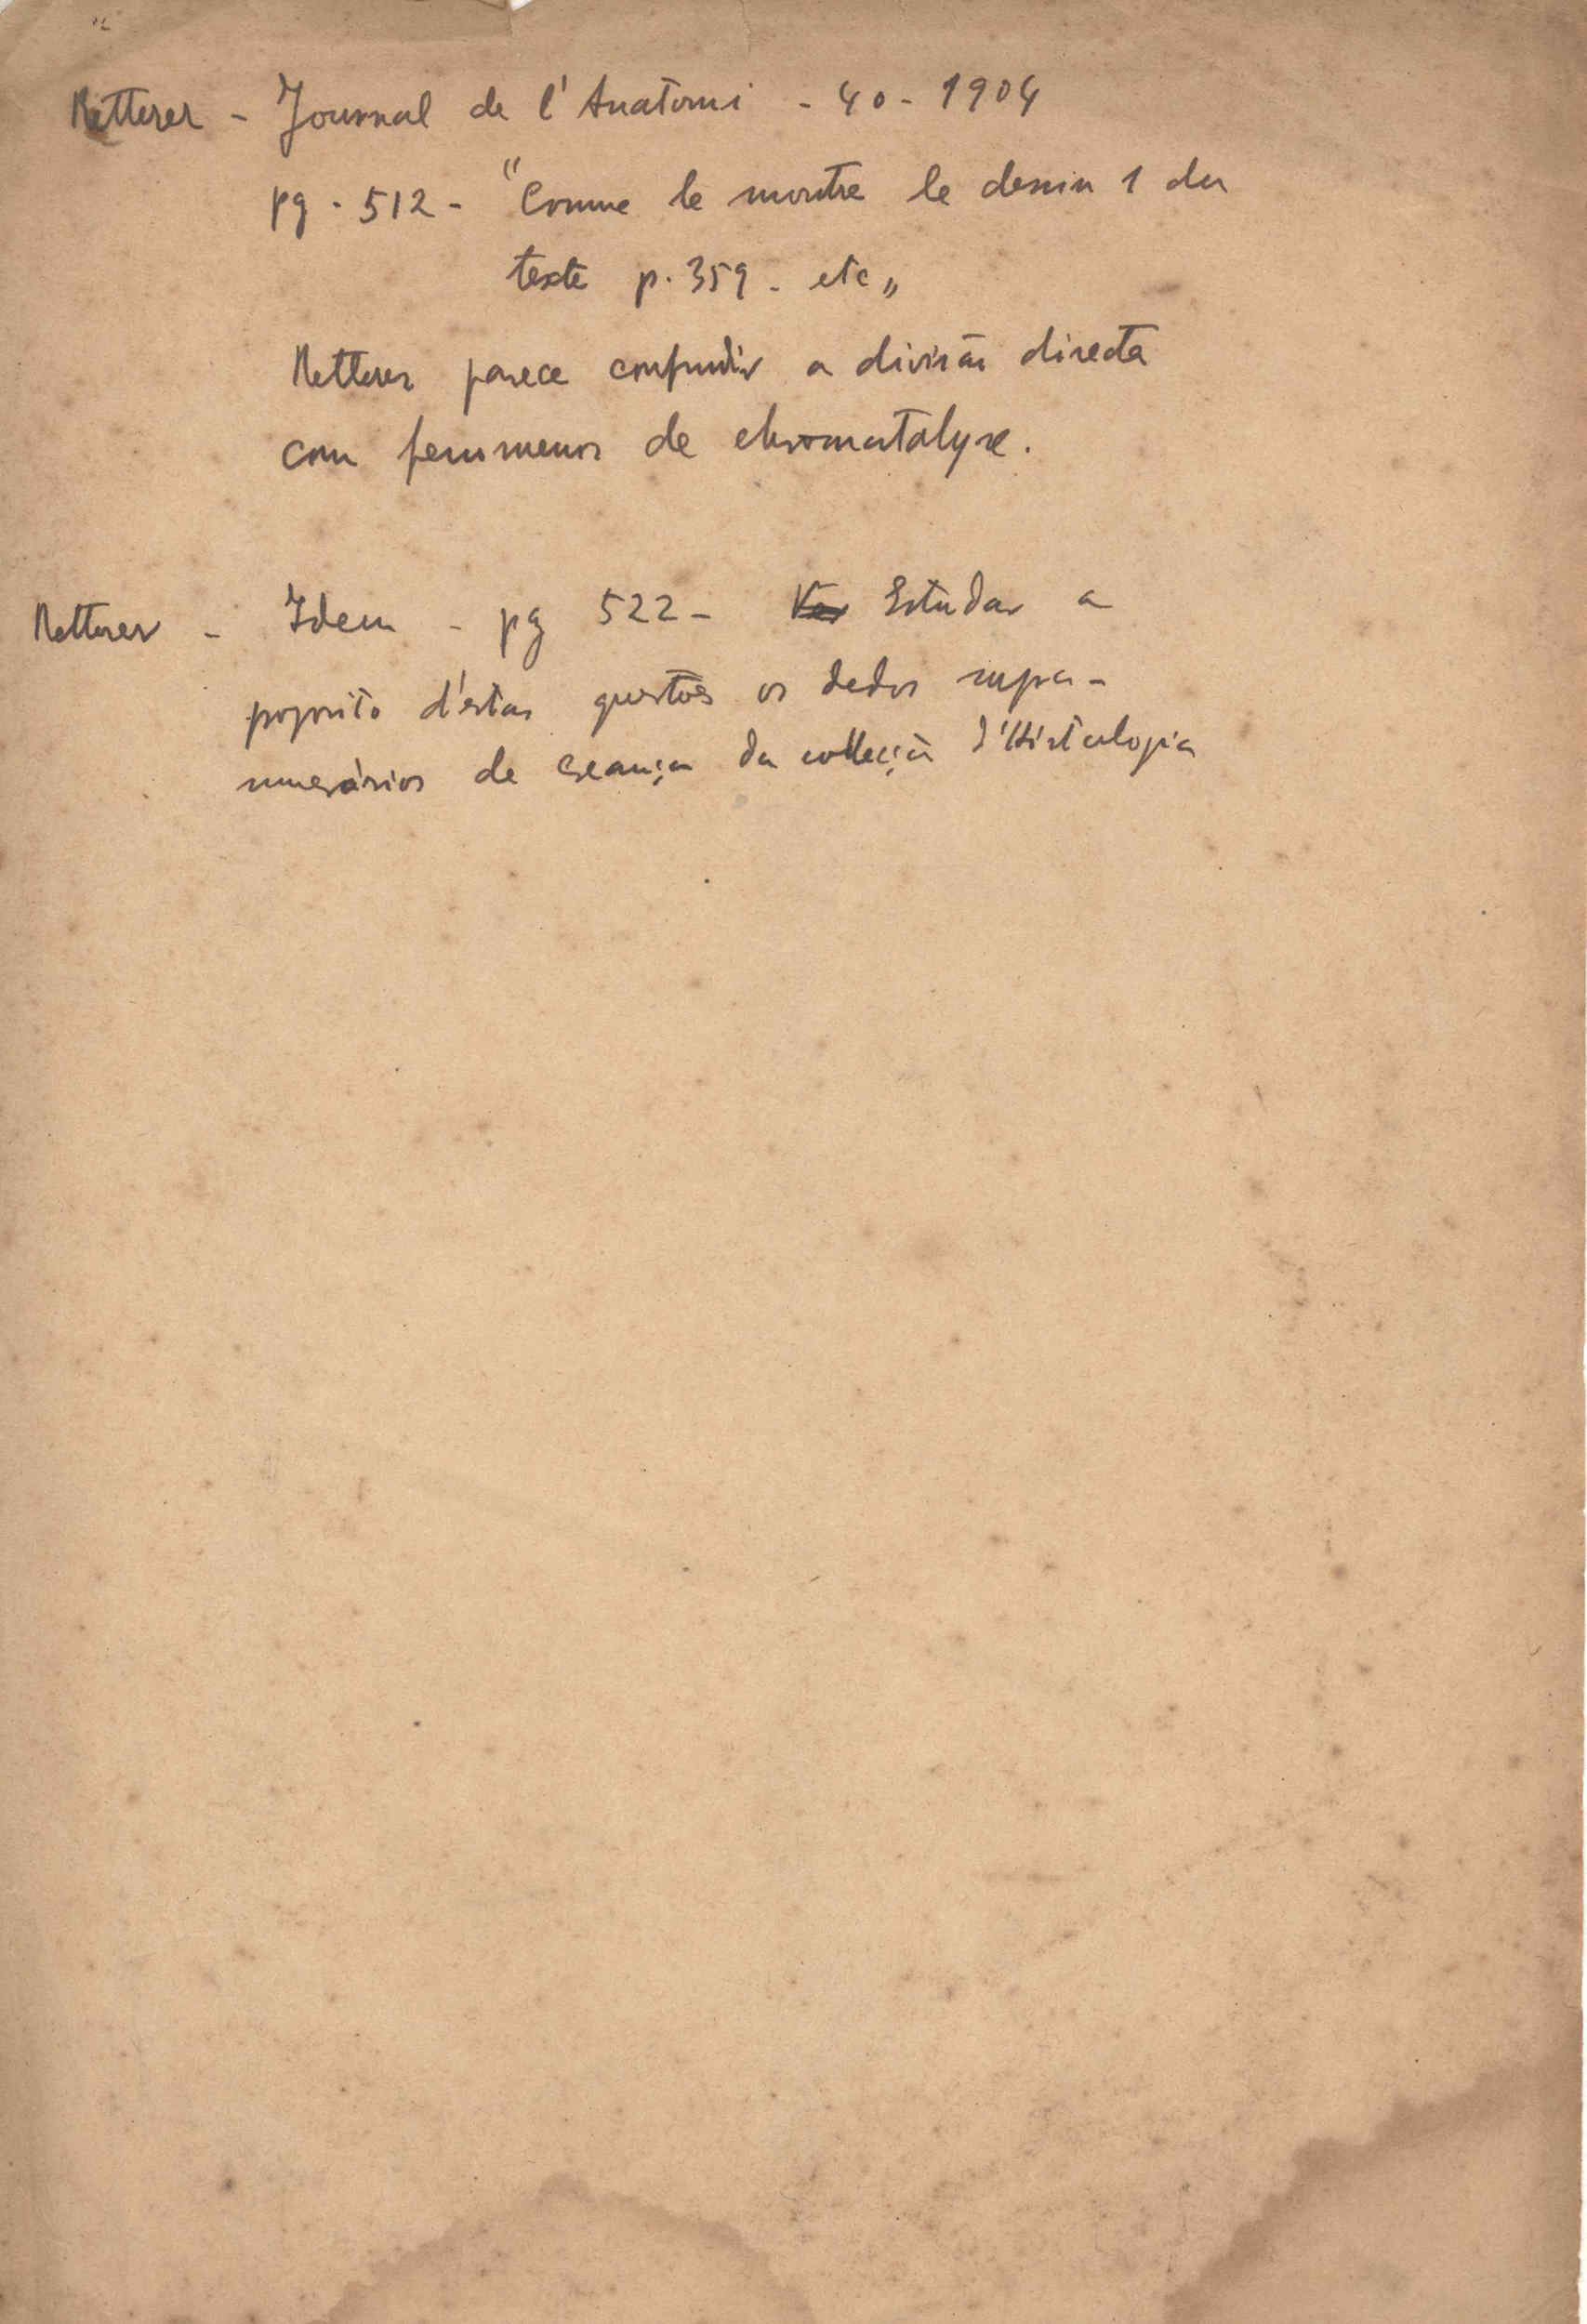 Retterer - Journal de l'Anatomi - 40 - 1904
pg. 512 - "Comme le montre le dessin 1 du
texte p. 359 - etc„
Retterer parece confundir a divisão directa
com fenomenos de chromatolyse.
Retterer - Idem - pg 522 - Ver Estudar a
proposito d'estas questões os dedos supra-
numerários de creança da collecção d'Histologia